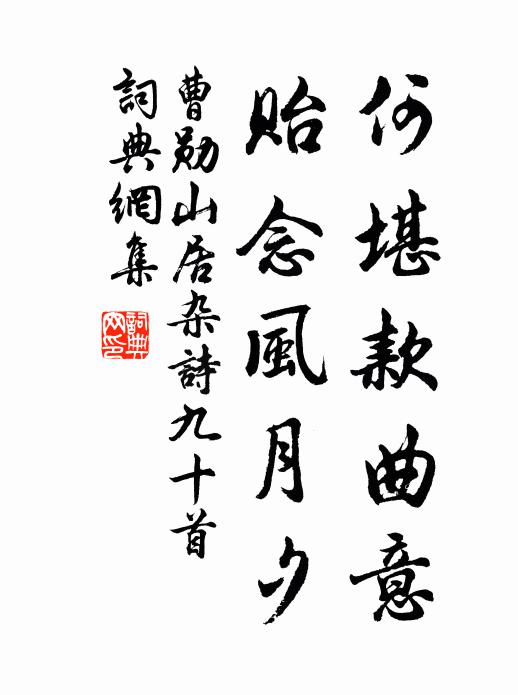 何堪款曲意
貽念風月夕
曹勋山居杂詩九十首
詞典網集
詞典
网印